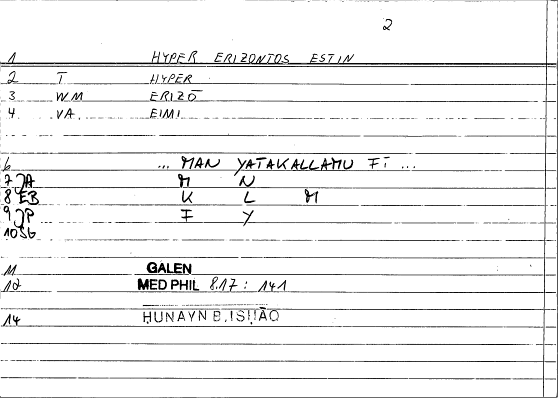 2
1 HYPER ERIZONTOS ESTIN
2 T HYPER
3 WM ERIZŌ
4 VA. EIMI
6 ... MAN YATAKALLAMU FĪ ...
7 JA M N
8 EB K L M
9 JP F Y
10 SG
11 GALEN
12 MED PHIL 8.17 : 141
14 HUNAYN B. ISḤĀQ